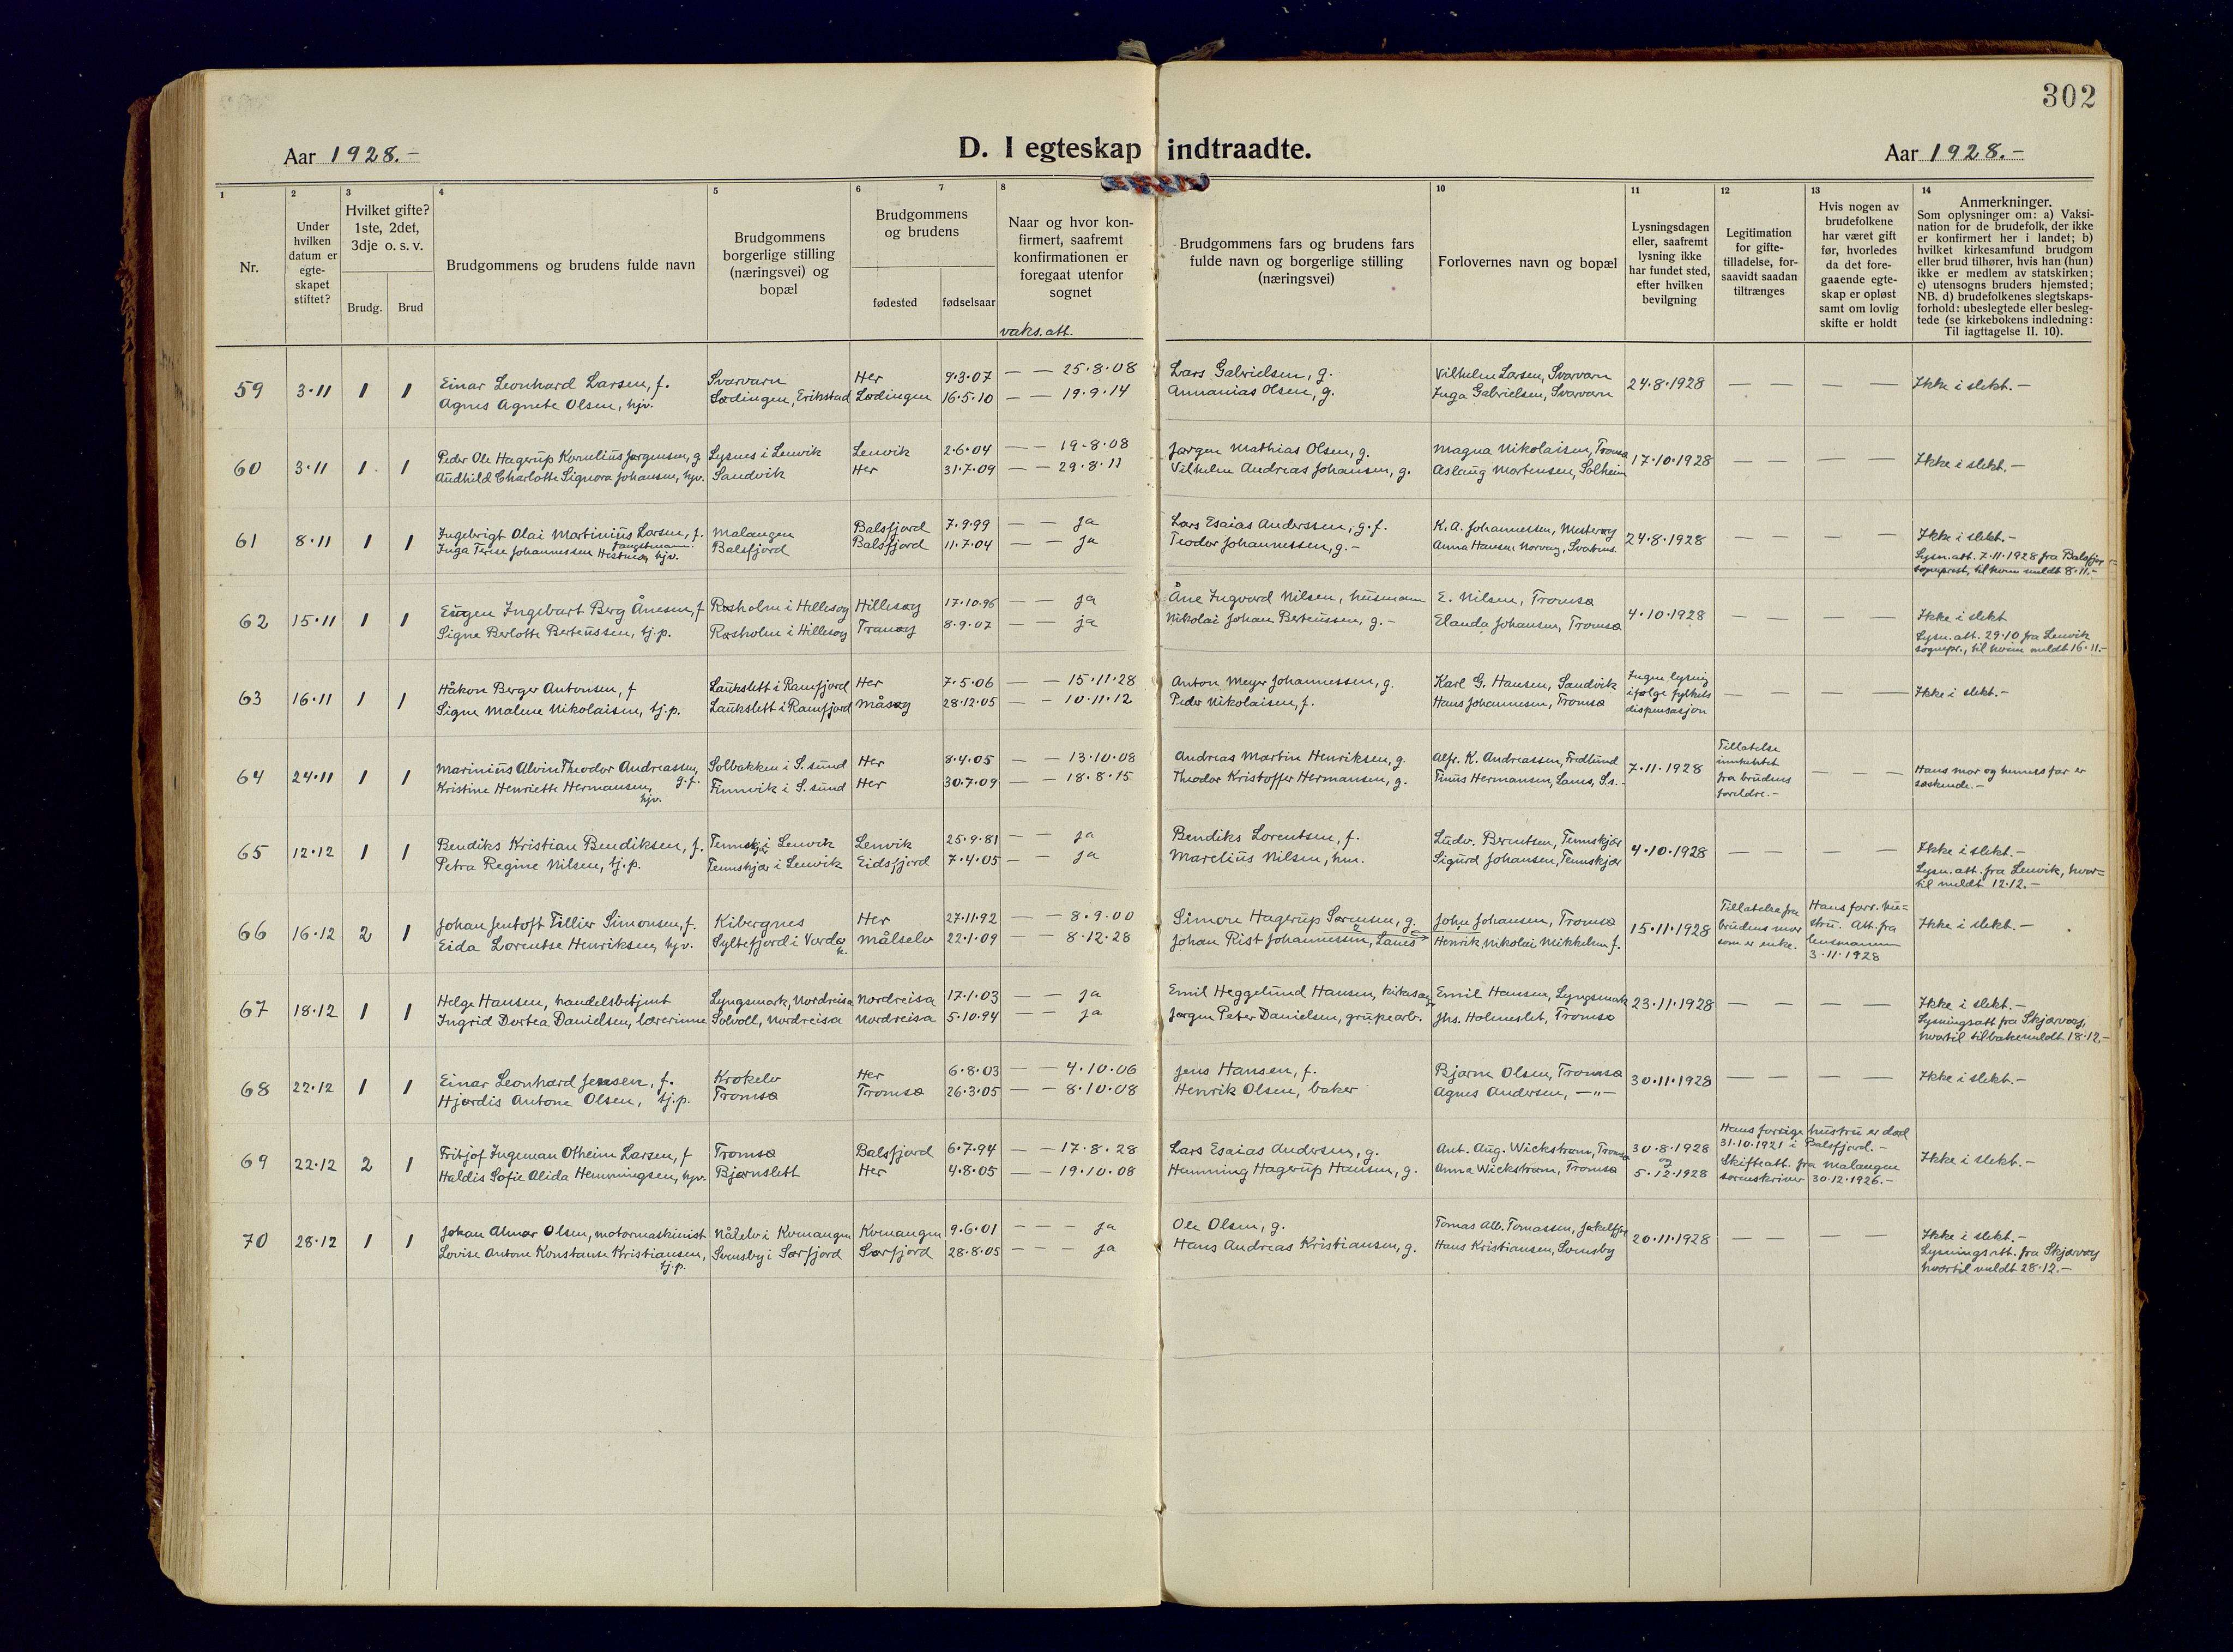 302
Aar 1928.-
D. I egteskap indtraadte.
Aar 1928.-
1 2 3 4 5 6 7 8 10 11 12 13 14
Nr.
Under hvilken datum er egte-skapet stiftet?
Hvilket gifte? 1ste, 2det, 3dje o. s. v.
Brudg. Brud
Brudgommens og brudens fulde navn
Brudgommens borgerlige stilling (næringsvei) og bopæl
Brudgommens og brudens
fødested fødselsaar
Naar og hvor kon-firmert, saafremt konfirmationen er foregaat utenfor sognet
vaks. att.
Brudgommens fars og brudens fars fulde navn og borgerlige stilling (næringsvei)
Forlovernes navn og bopæl
Lysningsdagen eller, saafremt lysning ikke har fundet sted, efter hvilken bevilgning
Legitimation for gifte-tilladelse, for-saavidt saadan tiltrænges
Hvis nogen av brudefolkene har været gift før, hvorledes da det fore-gaaende egte-skap er opløst samt om lovlig skifte er holdt
Anmerkninger.
Som oplysninger om: a) Vaksi-nation for de brudefolk, der ikke er konfirmert her i landet; b) hvilket kirkesamfund brudgom eller brud tilhører, hvis han (hun) ikke er medlem av statskirken; c) utensogns bruders hjemsted; NB. d) brudefolkenes slegtskaps-forhold: ubeslegtede eller besleg-tede (se kirkebokens indledning: Til iagttagelse II. 10).
59 3.11 1 1 Einar Leonhard Larsen, f. Svarvarn Her 9.3.07 — — 25.8.08 Lars Gabrielsen, g. Vilhelm Larsen, Svarvarn 24.8.1928 — — — — Ikke i slekt.-
Agnes Agnete Olsen, hjv. Lødingen, Erikstad Lødingen 16.5.10 — — 19.9.14 Annanias Olsen, g. Inga Gabrielsen, Svarvarn
60 3.11 1 1 Peder Ole Hagerup Kornelius Jørgensen, g Lysnes i Lenvik Lenvik 2.6.04 — — 19.8.08 Jørgen Mathias Olsen, g. Magna Nikolaisen, Tromsø 17.10.1928 — — — — Ikke i slekt.-
Audhild Charlotte Signora Johansen, hjv. Sandvik Her 31.7.09 — — 29.8.11 Vilhelm Andreas Johansen, g. Aslaug Mortensen, Solheim
61 8.11 1 1 Ingebrigt Olai Martinius Larsen, f. Malangen Balsfjord 7.9.99 — — ja Lars Esaias Anderssen, g.f. K. A. Johannessen, 24.8.1928 — — — — Ikke i slekt.-
Inga Terese Johannessen hjv. Balsfjord Balsfjord 11.7.04 — — ja Teodor Johannessen, g.- Anna Hansen
Lysn.att. 7.11.1928 fra Balsfjord
sogneprest, til hvem meldt 8.11.-
62 15.11 1 1 Eugen Ingebart Berg Ånesen, f Røsholm i Hillesøy Hillesøy 17.10.96 — — ja Åne Ingvard Nilsen, husmann E. Nilsen, Tromsø 4.10.1928 — — — — Ikke i slekt
Signe Berlotte Berteussen, tj.p. Røsholm i Hillesøy Tranøy 8.9.07 — — ja Nikolai Johan Berteussen, g.- Elanda Johansen, Tromsø
Lysn.att. 29.10 fra Lenvik
sognepr., til hvem meldt 16.11.-
63 16.11 1 1 Håkon Berger Antonsen, f Laukslett i Ramfjord Her 7.5.06 — — 15.11.28 Anton Meyer Johannessen, g. Karl G. Hansen, Sandvik Ingen lysning ifølge fylkets dispensasjon — — — — Ikke i slekt.-
Signe Malene Nikolaisen, tj.p. Laukslett i Ramfjord Måsøy 28.12.05 — — 10.11.12 Peder Nikolaisen, f. Hans Johannesen, Tromsø
64 24.11 1 1 Marinius Alvin Theodor Andreassen, g.f. Solbakken i S.sund Her 8.4.05 — — 13.10.08 Andreas Martin Henriksen, g. Alfr. K. Andreassen, Fredlund 7.11.1928 Tillatelse innhentet fra brudens foreldre.- — — — Hans mor og hennes far er søskende.-
Kristine Henriette Hermansen, hjv. Finnvik i S.sund Her 30.7.09 — — 18.8.15 Theodor Kristoffer Hermansen, g. Tinus Hermansen, Lanes, S.s.-
65 12.12 1 1 Bendiks Kristian Bendiksen, f. Tennskjær i Lenvik Lenvik 25.9.81 — — ja Bendiks Lorentsen, f. Ludv. Berntsen, Tennskjær 4.10.1928 — — — — Ikke i slekt.-
Petra Regine Nilsen, tj.p. Tennskjær i Lenvik Eidsfjord 7.4.05 — — ja Marelius Nilsen, hm. Sigurd Johansen, Tennskjær
Lysn.att. fra Lenvik, hvor=
til meldt 12.12.-
66 16.12 2 1 Johan Jentoft Tillier Simonsen, f. Kibergnes Her 27.11.92 — — 8.9.00 Simon Hagerup Sørensen, g. John Johansen, Tromsø 15.11.1928 Tillatelse fra brudens mor som er enke. Hans forr. hu=stru. Att. fra lensmannen 3.11.1928 Ikke i slekt.-
Eida Lorentse Henriksen, hjv. Syltefjord i Vardø Målselv 22.1.09 — — 8.12.28 Johan Rist Johannessen, Lanes Henrik Nikolai Mikkelsen f.
67 18.12 1 1 Helge Hansen, handelsbetjent Lyngsmark, Nordreisa Nordreisa 17.1.03 — — ja Emil Heggelund Hansen, Emil Hansen, Lyngsmark 23.11.1928 — — — — Ikke i slekt.-
Ingrid Dortea Danielsen, lærerinne Solvoll, Nordreisa Nordreisa 5.10.94 — — ja Jørgen Peter Danielsen, Jhs. Holmeslet, Tromsø
Lysningsatt fra Skjærvøy,
hvortil tilbakemeldt 18.12.-
68 22.12 1 1 Einar Leonhard Jensen, f. Krokelv Her 6.8.03 — — 4.10.06 Jens Hansen, f. Bjarne Olsen, Tromsø 30.11.1928 — — — — Ikke i slekt.-
Hjørdis Antone Olsen, tj.p. Tromsø Tromsø 26.3.05 — — 8.10.08 Henrik Olsen, baker Agnes Andersen, —"—
69 22.12 2 1 Fritjof Ingeman Otheim Larsen, f Tromsø Balsfjord 6.7.94 — — 17.8.28 Lars Esaias Andersen, g. Ant. Aug. Wickstrøm, Tromsø 30.8.1928 og 5.12.1928 Hans forrige hustru er død 31.10.1921 i Balsfjord.- Skifteatt. fra Malangen sorenskriver 30.12.1926.- Ikke i slekt.-
Haldis Sofie Alida Hemmingsen, hjv. Bjørnslett Her 4.8.05 — — 19.10.08 Hemming Hagerup Hansen, g. Anna Wickstrøm, Tromsø
70 28.12 1 1 Johan Almar Olsen, motormaskinist Nålelv i Kvænangen Kvænangen 9.6.01 — — — ja Ole Olsen, g. Tomas Alb. Tomassen, 20.11.1928 — — — — Ikke i slekt.-
Lovise Antone Konstanse Kristiansen, tj.p. Svensby i Sørfjord Sørfjord 28.8.05 — — — ja Hans Andreas Kristiansen, g. Hans Kristiansen, Svensby
Lysningsatt. fra Skjærvøy
hvortil meldt 28.12.-